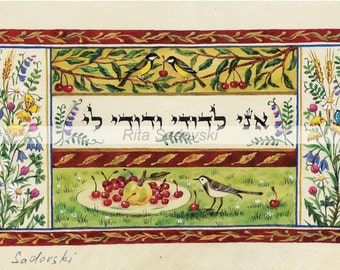 אני לדודי ודודי לי
Rita Sadovski
Sadovski